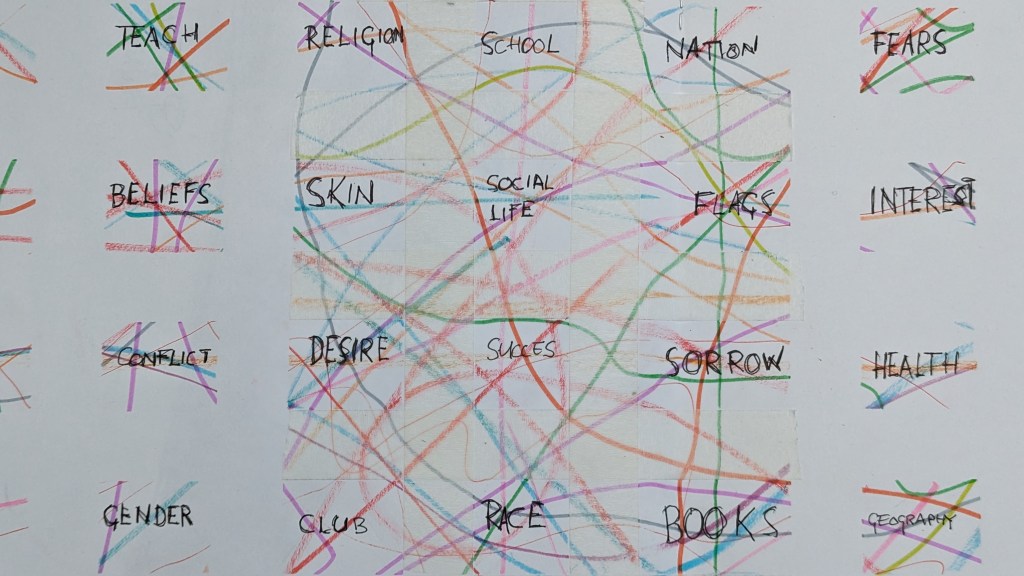 TEACH RELIGION SCHOOL NATION FEARS
BELIEFS SKIN SOCIAL LIFE FLAGS INTEREST
CONFLICT DESIRE SUCCES SORROW HEALTH
GENDER CLUB RACE BOOKS GEOGRAPHY